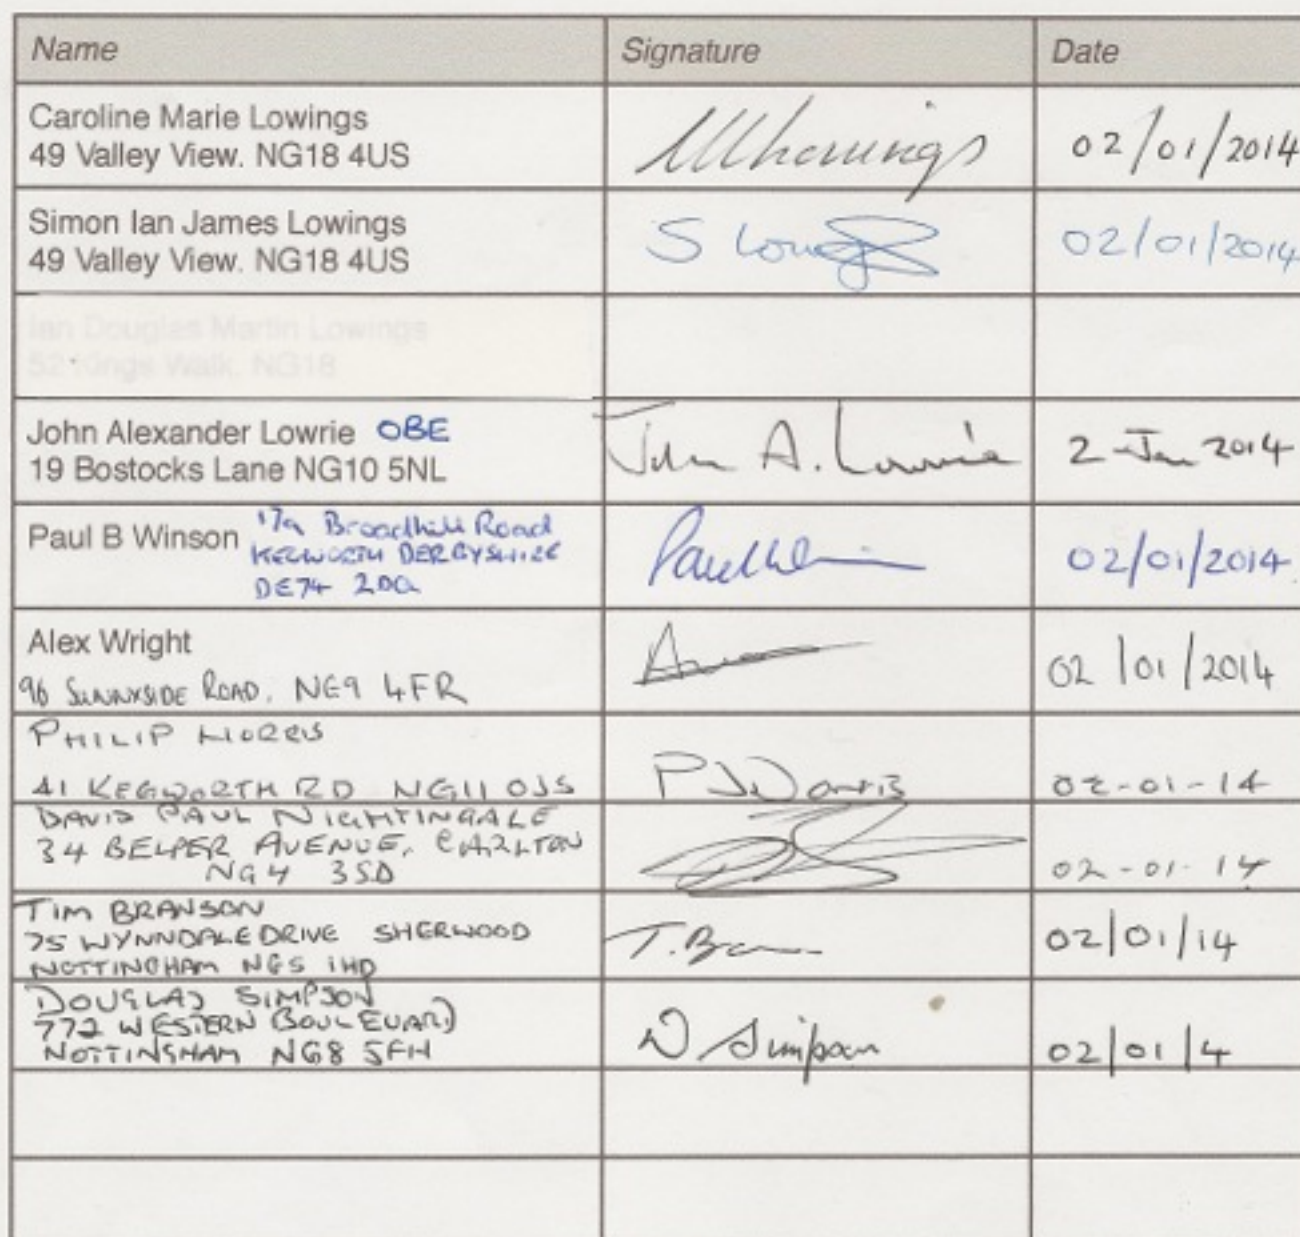 Name Signature Date
Caroline Marie Lowings
49 Valley View. NG18 4US
02/01/2014
Simon Ian James Lowings
49 Valley View. NG18 4US
S 02/01/2014
Ian Douglas Martin Lowings
52 Kings Walk. NG18
John Alexander Lowrie OBE
19 Bostocks Lane NG10 5NL
John A. Lowrie 2-Jan 2014
Paul B Winson 17a Broadhill Road
KEGWORTH DERBYSHIRE
DE74 2DQ
02/01/2014
Alex Wright
96 SUNNYSIDE ROAD. NG9 4FR
02/01/2014
PHILIP NORRIS
41 KEGWORTH RD NG11 0JS
02-01-14
DAVID PAUL NIGHTINGALE
34 BELPER AVENUE, CARLTON
NG4 3SD
02-01-14
TIM BRANSON
75 WYNNDALE DRIVE SHERWOOD
NOTTINGHAM NG5 1HD
T. 02/01/14
DOUGLAS SIMPSON
772 WESTERN BOULEVARD
NOTTINGHAM NG8 5FH
D Simpson 02/01/4